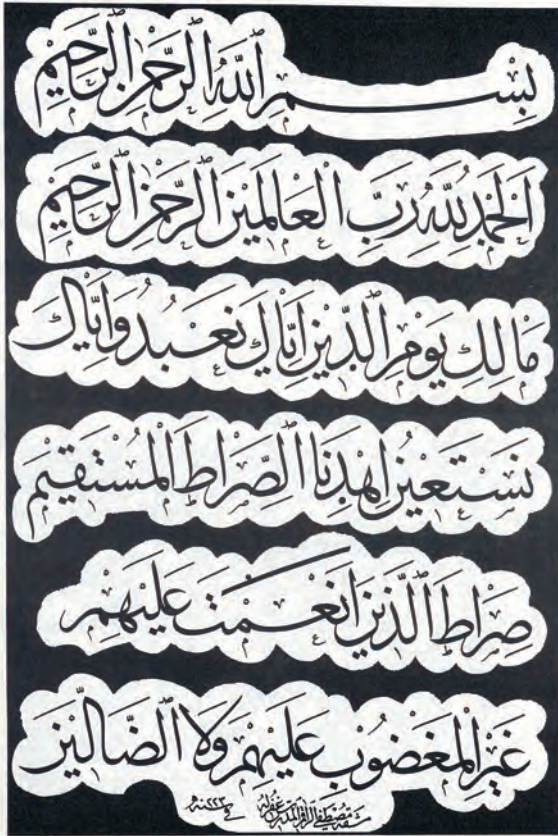 بِسْمِ اللّٰهِ الرَّحْمٰنِ الرَّحِيْمِ
اَلْحَمْدُ لِلّٰهِ رَبِّ الْعَالَمِيْنَ الرَّحْمٰنِ الرَّحِيْمِ
مَالِكِ يَوْمِ الدِّيْنِ اِيَّاكَ نَعْبُدُ وَاِيَّاكَ
نَسْتَعِيْنُ اِهْدِنَا الصِّرَاطَ الْمُسْتَقِيْمَ
صِرَاطَ الَّذِيْنَ اَنْعَمْتَ عَلَيْهِمْ
غَيْرِ الْمَغْضُوْبِ عَلَيْهِمْ وَلَا الضَّالِّيْنَ
مصطفى الراقم غفرله